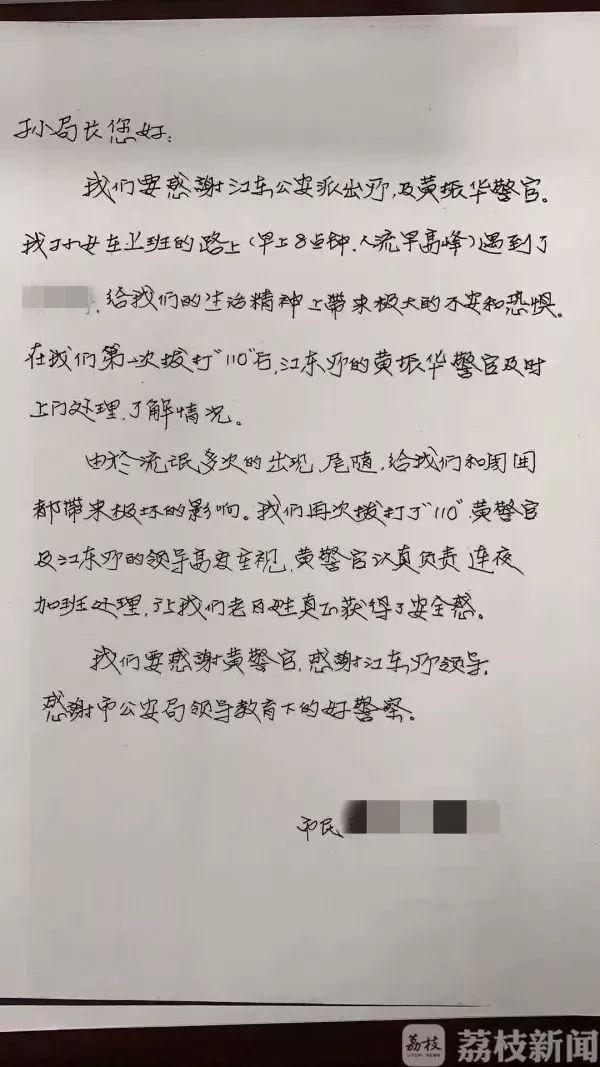 孙局长您好:
我们要感谢江东公安派出所,及黄振华警官。
我于小女在上班的路上(早上8点钟.人流早高峰)遇到了
,给我们的生活精神上带来极大的不安和恐惧。
在我们第一次拔打"110"后,江东所的黄振华警官及时
上门处理,了解情况。
由於流氓多次的出现,尾随,给我们和周围
都带来极坏的影响。我们再次拔打了"110".黄警官
及江东所的领导高度重视,黄警官认真负责 连夜
加班处理,让我们老百姓真正获得了安全感。
我们要感谢黄警官,感谢江东所领导,
感谢市公安局领导教育下的好警察。
市民
荔枝
LITCHI NEWS
荔枝新闻